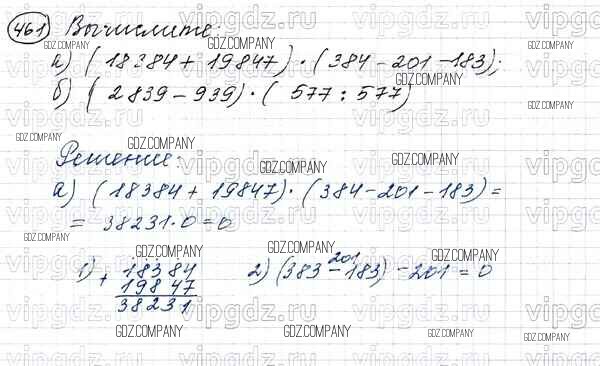 461 Вычислите:
а) (18384 + 19847) · (384 - 201 - 183);
б) (2839 - 939) · (577 : 577)
Решение:
а) (18384 + 19847) · (384 - 201 - 183) =
= 38231 · 0 = 0
1) + 18384
19847
38231
2) (383 - 183) - 201 = 0
201
vipgdz.ru
GDZ.COMPANY